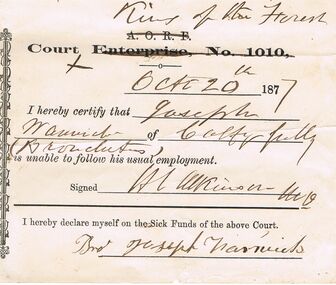 King of the Forest
A.O.R.F.
Court Enterprise, No. 1010,
Octr 20th 1877
I hereby certify that Joseph
Warwick of
(Bronchitis)
is unable to follow his usual employment.
Signed H L Atkinson
I hereby declare myself on the Sick Funds of the above Court.
Bro Joseph Warwick